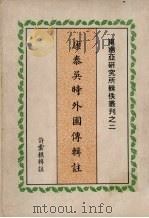 東南亞研究所輯佚叢刊之二
康泰吳時外國傳輯註
許雲樵輯註